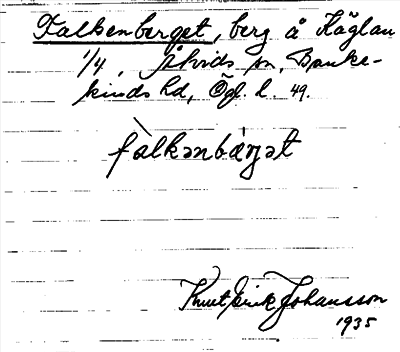 Falkenberget, berg å Häglan
1/4, Åtvids sn, Banke-
kinds hd, Ögl. l. 49.
fàlkənbárjət
Knut Erik Johansson
1935